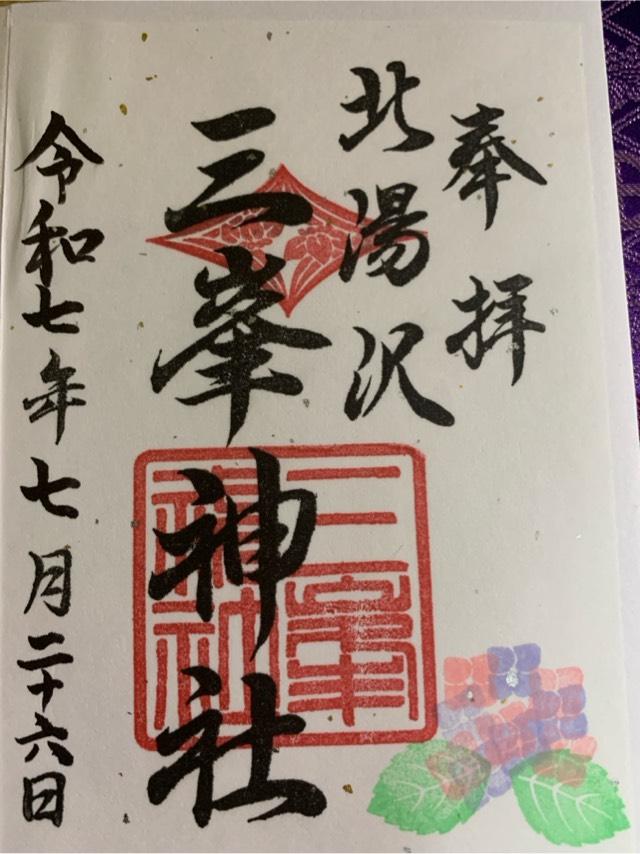 奉拝
北湯沢
三峯神社
三峯
神社
令和七年七月二十六日